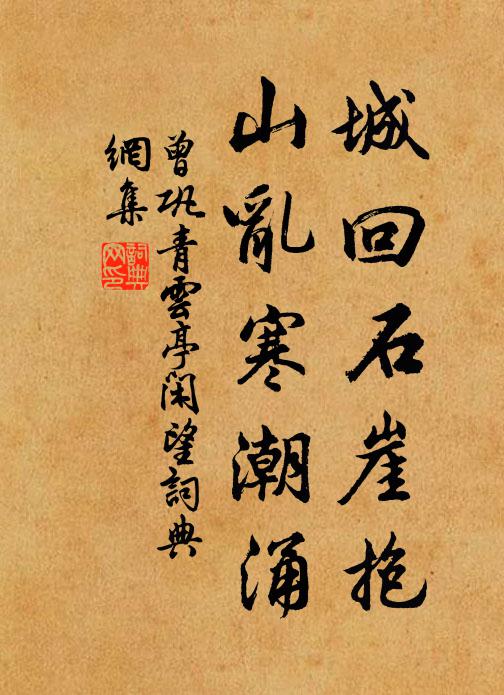 城回石崖抱
山亂寒潮涌
曾巩青雲亭閑望詞典
網集
詞典
网印